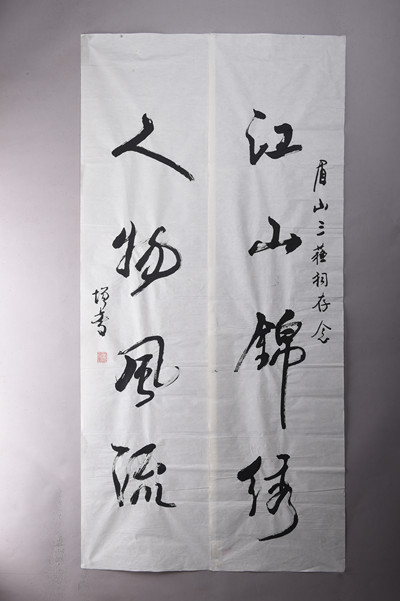 眉山三蘓祠存念
江山錦绣
人物风流